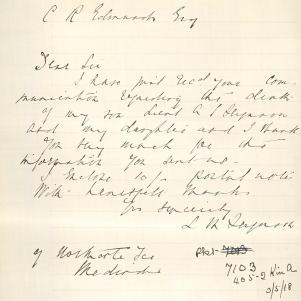 C R Edmunds Esq
Dear Sir
I have just recd your com-
munication regarding the death
of my son Lieut A L Ferguson
and my daughter and I thank
you very much for the
information you sent us.
I Enclose 10/- postal note
With heartfelt thanks
Yrs sincerely
L M Ferguson
7103
3/5/18